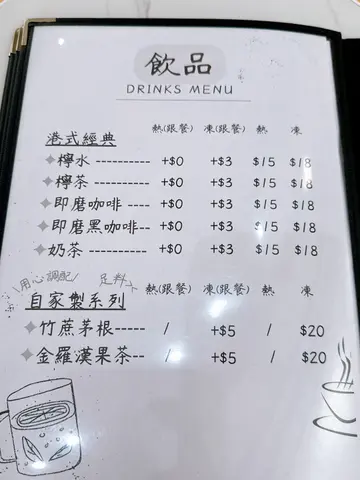 飲品
DRINKS MENU
港式經典 熱(跟餐) 凍(跟餐) 熱 凍
檸水 ---------- +$0 +$3 $15 $18
檸茶 ---------- +$0 +$3 $15 $18
即磨咖啡 ---- +$0 +$3 $15 $18
即磨黑咖啡-- +$0 +$3 $15 $18
奶茶 ---------- +$0 +$3 $15 $18
用心調配 足料
自家製系列 熱(跟餐) 凍(跟餐) 熱 凍
竹蔗茅根----- / +$5 / $20
金羅漢果茶-- / +$5 / $20